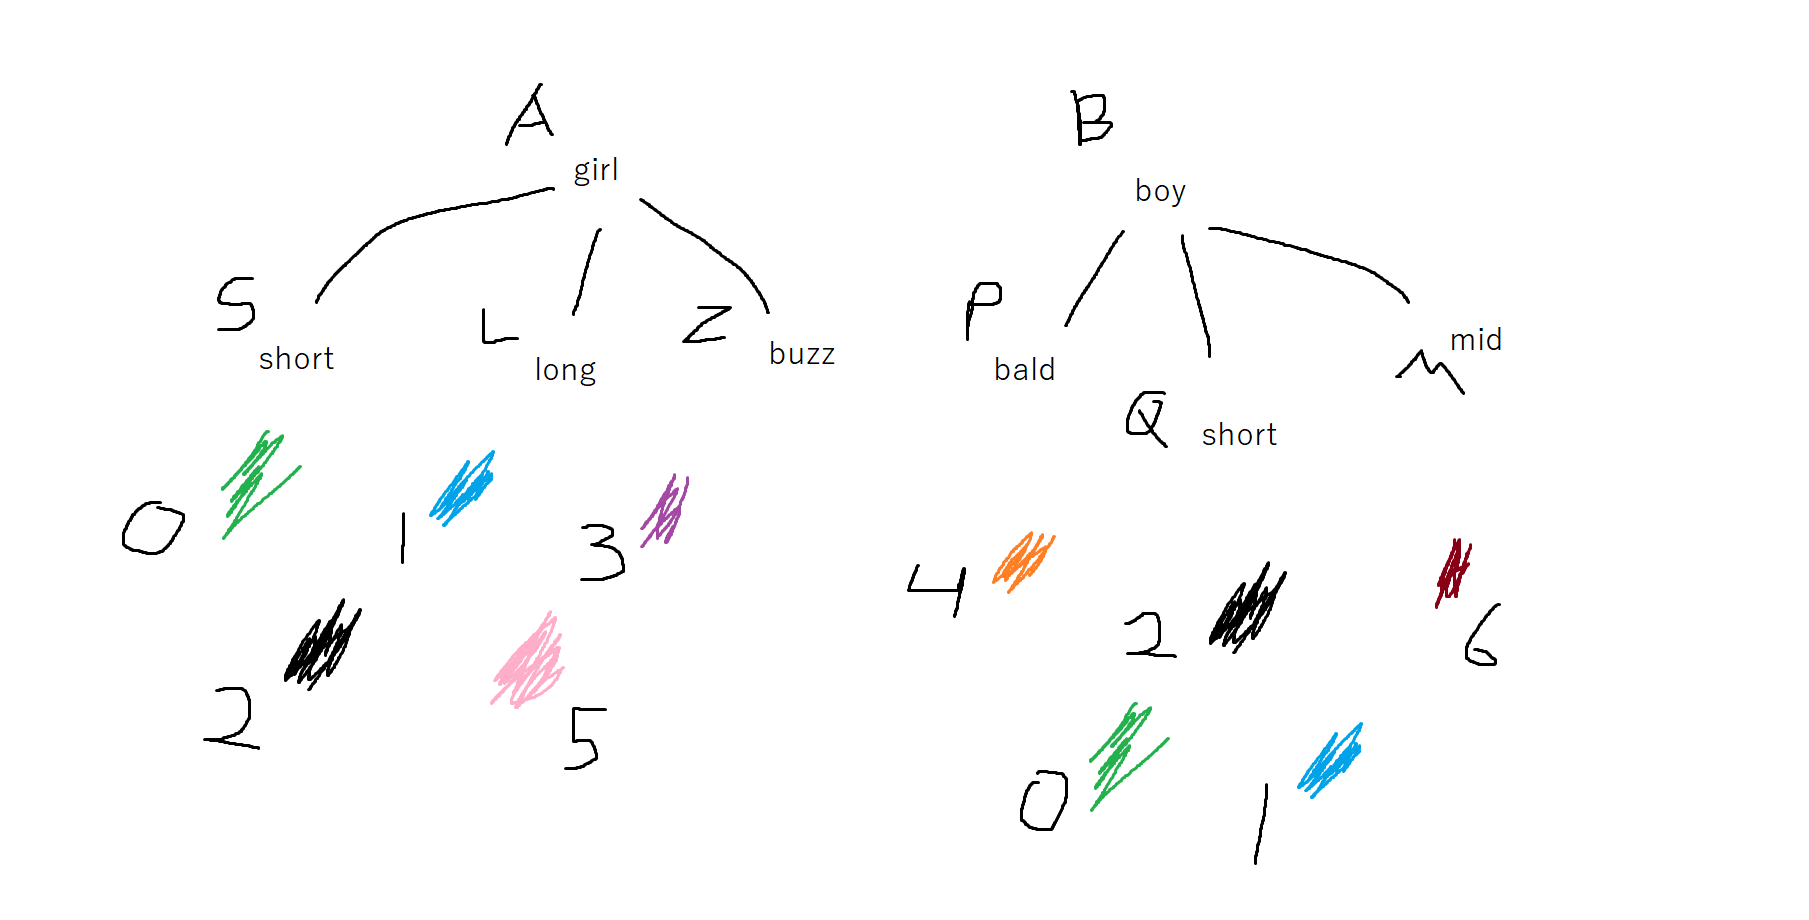 A
girl
S
short
L
long
Z
buzz
0
1
3
2
5
B
boy
P
bald
Q
short
mid
M
4
2
6
0
1